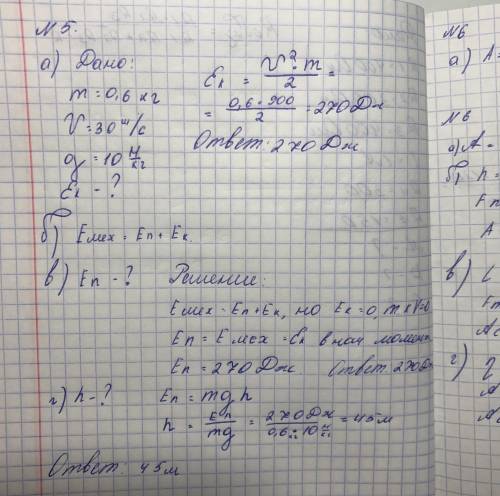 N 5.
а) Дано:
m = 0,6 кг
V = 30 м/с
g = 10 Н/кг
Eк - ?
Eк = V²·m/2 =
= 0,6·900/2 = 270 Дж
Ответ: 270 Дж
б) Eмех = Eп + Eк.
в) Eп - ?
Решение:
Eмех = Eп + Eк, но Eк = 0, т к V = 0
Eп = Eмех = Eк в нач момент
Eп = 270 Дж. Ответ: 270 Дж
г) h - ?
Eп = mgh
h = Eп/mg = 270 Дж/0,6 кг · 10 Н/кг = 45 м
Ответ: 45 м
N6
а) A =
N6
а) A =
б) h =
Fт
A
в)
г)